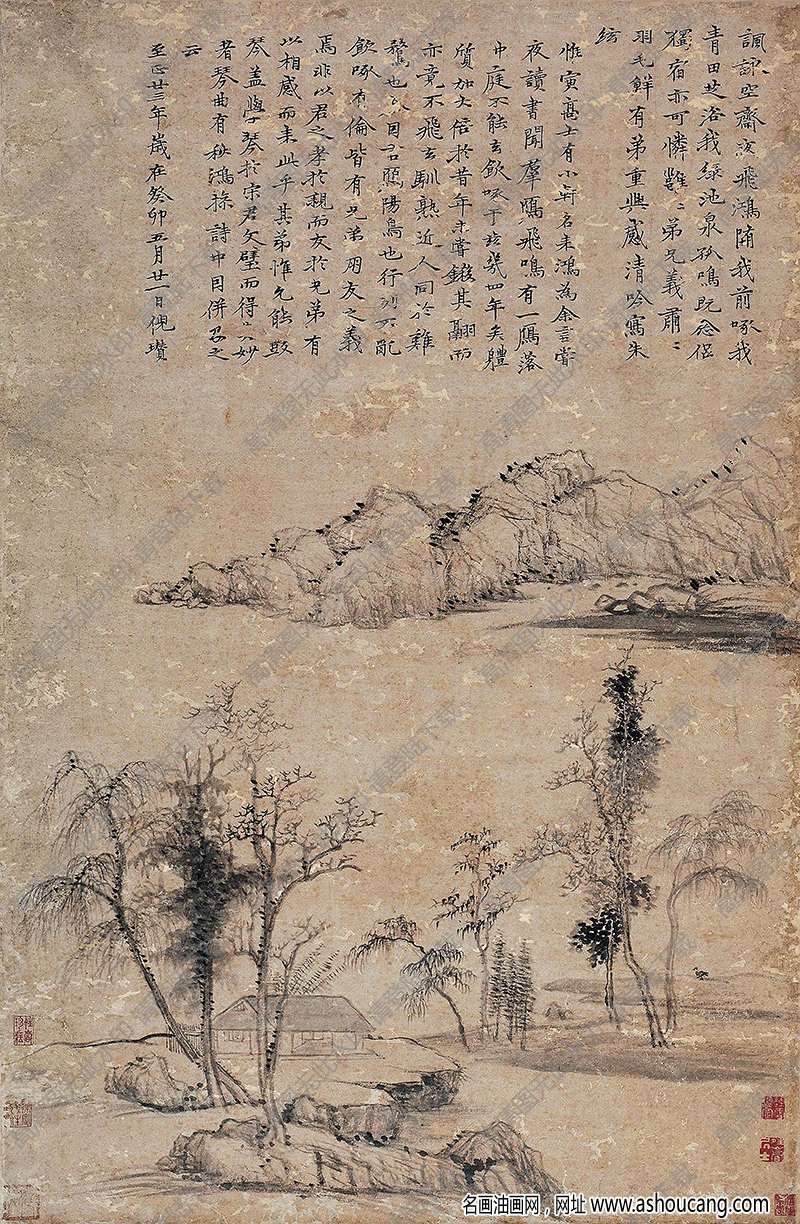 諷詠空齋夜飛鴻隨我前啄我
青田芝浴我綠池泉孤鳴既念侶
獨宿亦可憐雝雝弟兄義肅肅
羽毛鮮有弟重興感清吟寫朱
絃
惟寅高士有小軒名来鴻為余言嘗
夜讀書聞羣鴈飛鳴有一鴈落
中庭不能去飲啄于玆幾四年矣軆
質加大倍於昔年未嘗鎩其翮而
亦竟不飛去馴熟近人同於雞
鶩也 目曰鴈陽鳥也行列不亂
飲啄有倫皆有兄弟朋友之義
焉非以君之孝於親而友於兄弟有
以相感而来此乎其弟惟允能鼓
琴盖學琴於宋君文璧而得其妙
者琴曲有秋鴻操詩中因併及之
云
至正廿三年歲在癸卯五月廿一日倪瓚
名画油画网，网址 www.ashoucang.com